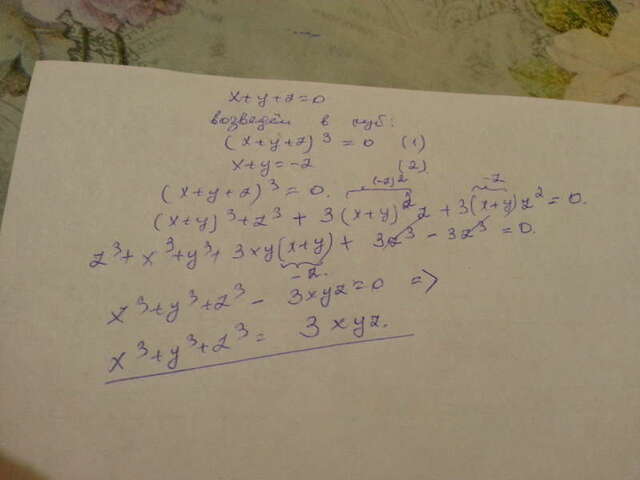 x+y+z=0
возведём в куб:
(x+y+z)³=0 (1)
x+y=-z (2)
(x+y+z)³=0. (-z)² -z
(x+y)³+z³+3(x+y)²z+3(x+y)z²=0.
z³+x³+y³+3xy(x+y)+3z³-3z³=0.
-z.
x³+y³+z³-3xyz=0 =>
x³+y³+z³=3xyz.